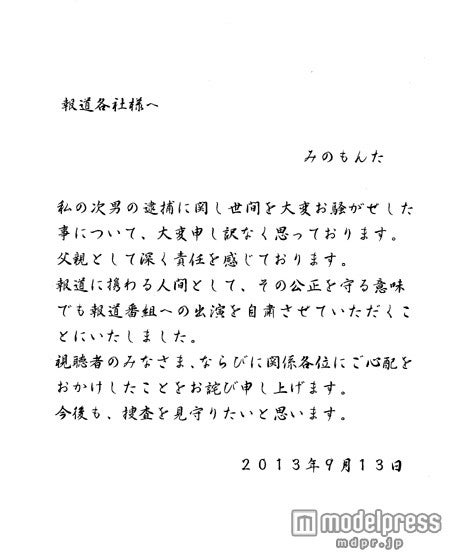 報道各社様へ
みのもんた
私の次男の逮捕に関し世間を大変お騒がせした
事について、大変申し訳なく思っております。
父親として深く責任を感じております。
報道に携わる人間として、その公正を守る意味
でも報道番組への出演を自粛させていただくこ
とにいたしました。
視聴者のみなさま、ならびに関係各位にご心配を
おかけしたことをお詫び申し上げます。
今後も、捜査を見守りたいと思います。
2013年9月13日
modelpress
mdpr.jp